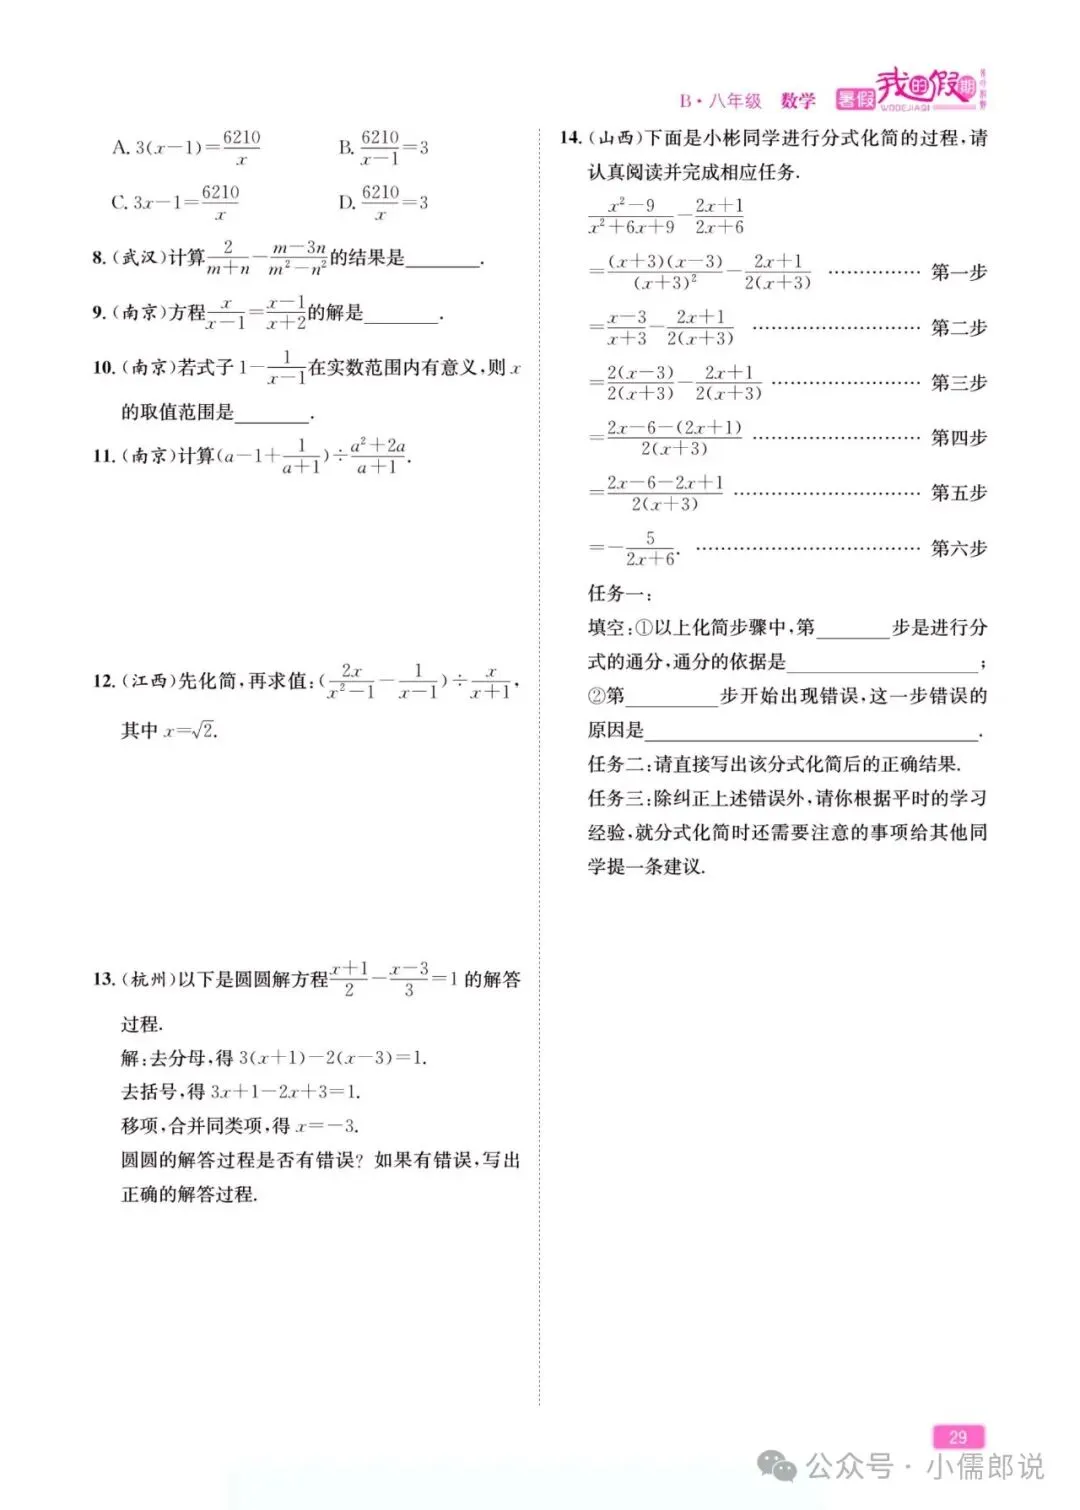 B·八年级 数学 暑假 我的假期
WODEJIAQI
A. 3(x-1)=6210/x B. 6210/(x-1)=3
C. 3x-1=6210/x D. 6210/x=3
8.(武汉)计算2/(m+n)-(m-3n)/(m²-n²)的结果是________.
9.(南京)方程x/(x-1)=(x-1)/(x+2)的解是________.
10.(南京)若式子1-1/(x-1)在实数范围内有意义,则x
的取值范围是________.
11.(南京)计算(a-1+1/(a+1))÷(a²+2a)/(a+1).
12.(江西)先化简,再求值:(2x/(x²-1)-1/(x-1))÷x/(x+1),
其中x=√2.
13.(杭州)以下是圆圆解方程(x+1)/2-(x-3)/3=1的解答
过程.
解:去分母,得3(x+1)-2(x-3)=1.
去括号,得3x+1-2x+3=1.
移项,合并同类项,得x=-3.
圆圆的解答过程是否有错误?如果有错误,写出
正确的解答过程.
14.(山西)下面是小彬同学进行分式化简的过程,请
认真阅读并完成相应任务.
(x²-9)/(x²+6x+9)-(2x+1)/(2x+6)
=(x+3)(x-3)/(x+3)²-(2x+1)/2(x+3) …………… 第一步
=(x-3)/(x+3)-(2x+1)/2(x+3) ……………………… 第二步
=2(x-3)/2(x+3)-(2x+1)/2(x+3) …………………… 第三步
=(2x-6-(2x+1))/2(x+3) ……………………… 第四步
=(2x-6-2x+1)/2(x+3) ………………………… 第五步
=-5/(2x+6). ……………………………… 第六步
任务一:
填空:①以上化简步骤中,第________步是进行分
式的通分,通分的依据是____________________;
②第__________步开始出现错误,这一步错误的
原因是___________________________________.
任务二:请直接写出该分式化简后的正确结果.
任务三:除纠正上述错误外,请你根据平时的学习
经验,就分式化简时还需要注意的事项给其他同
学提一条建议.
29
公众号·小儒郎说